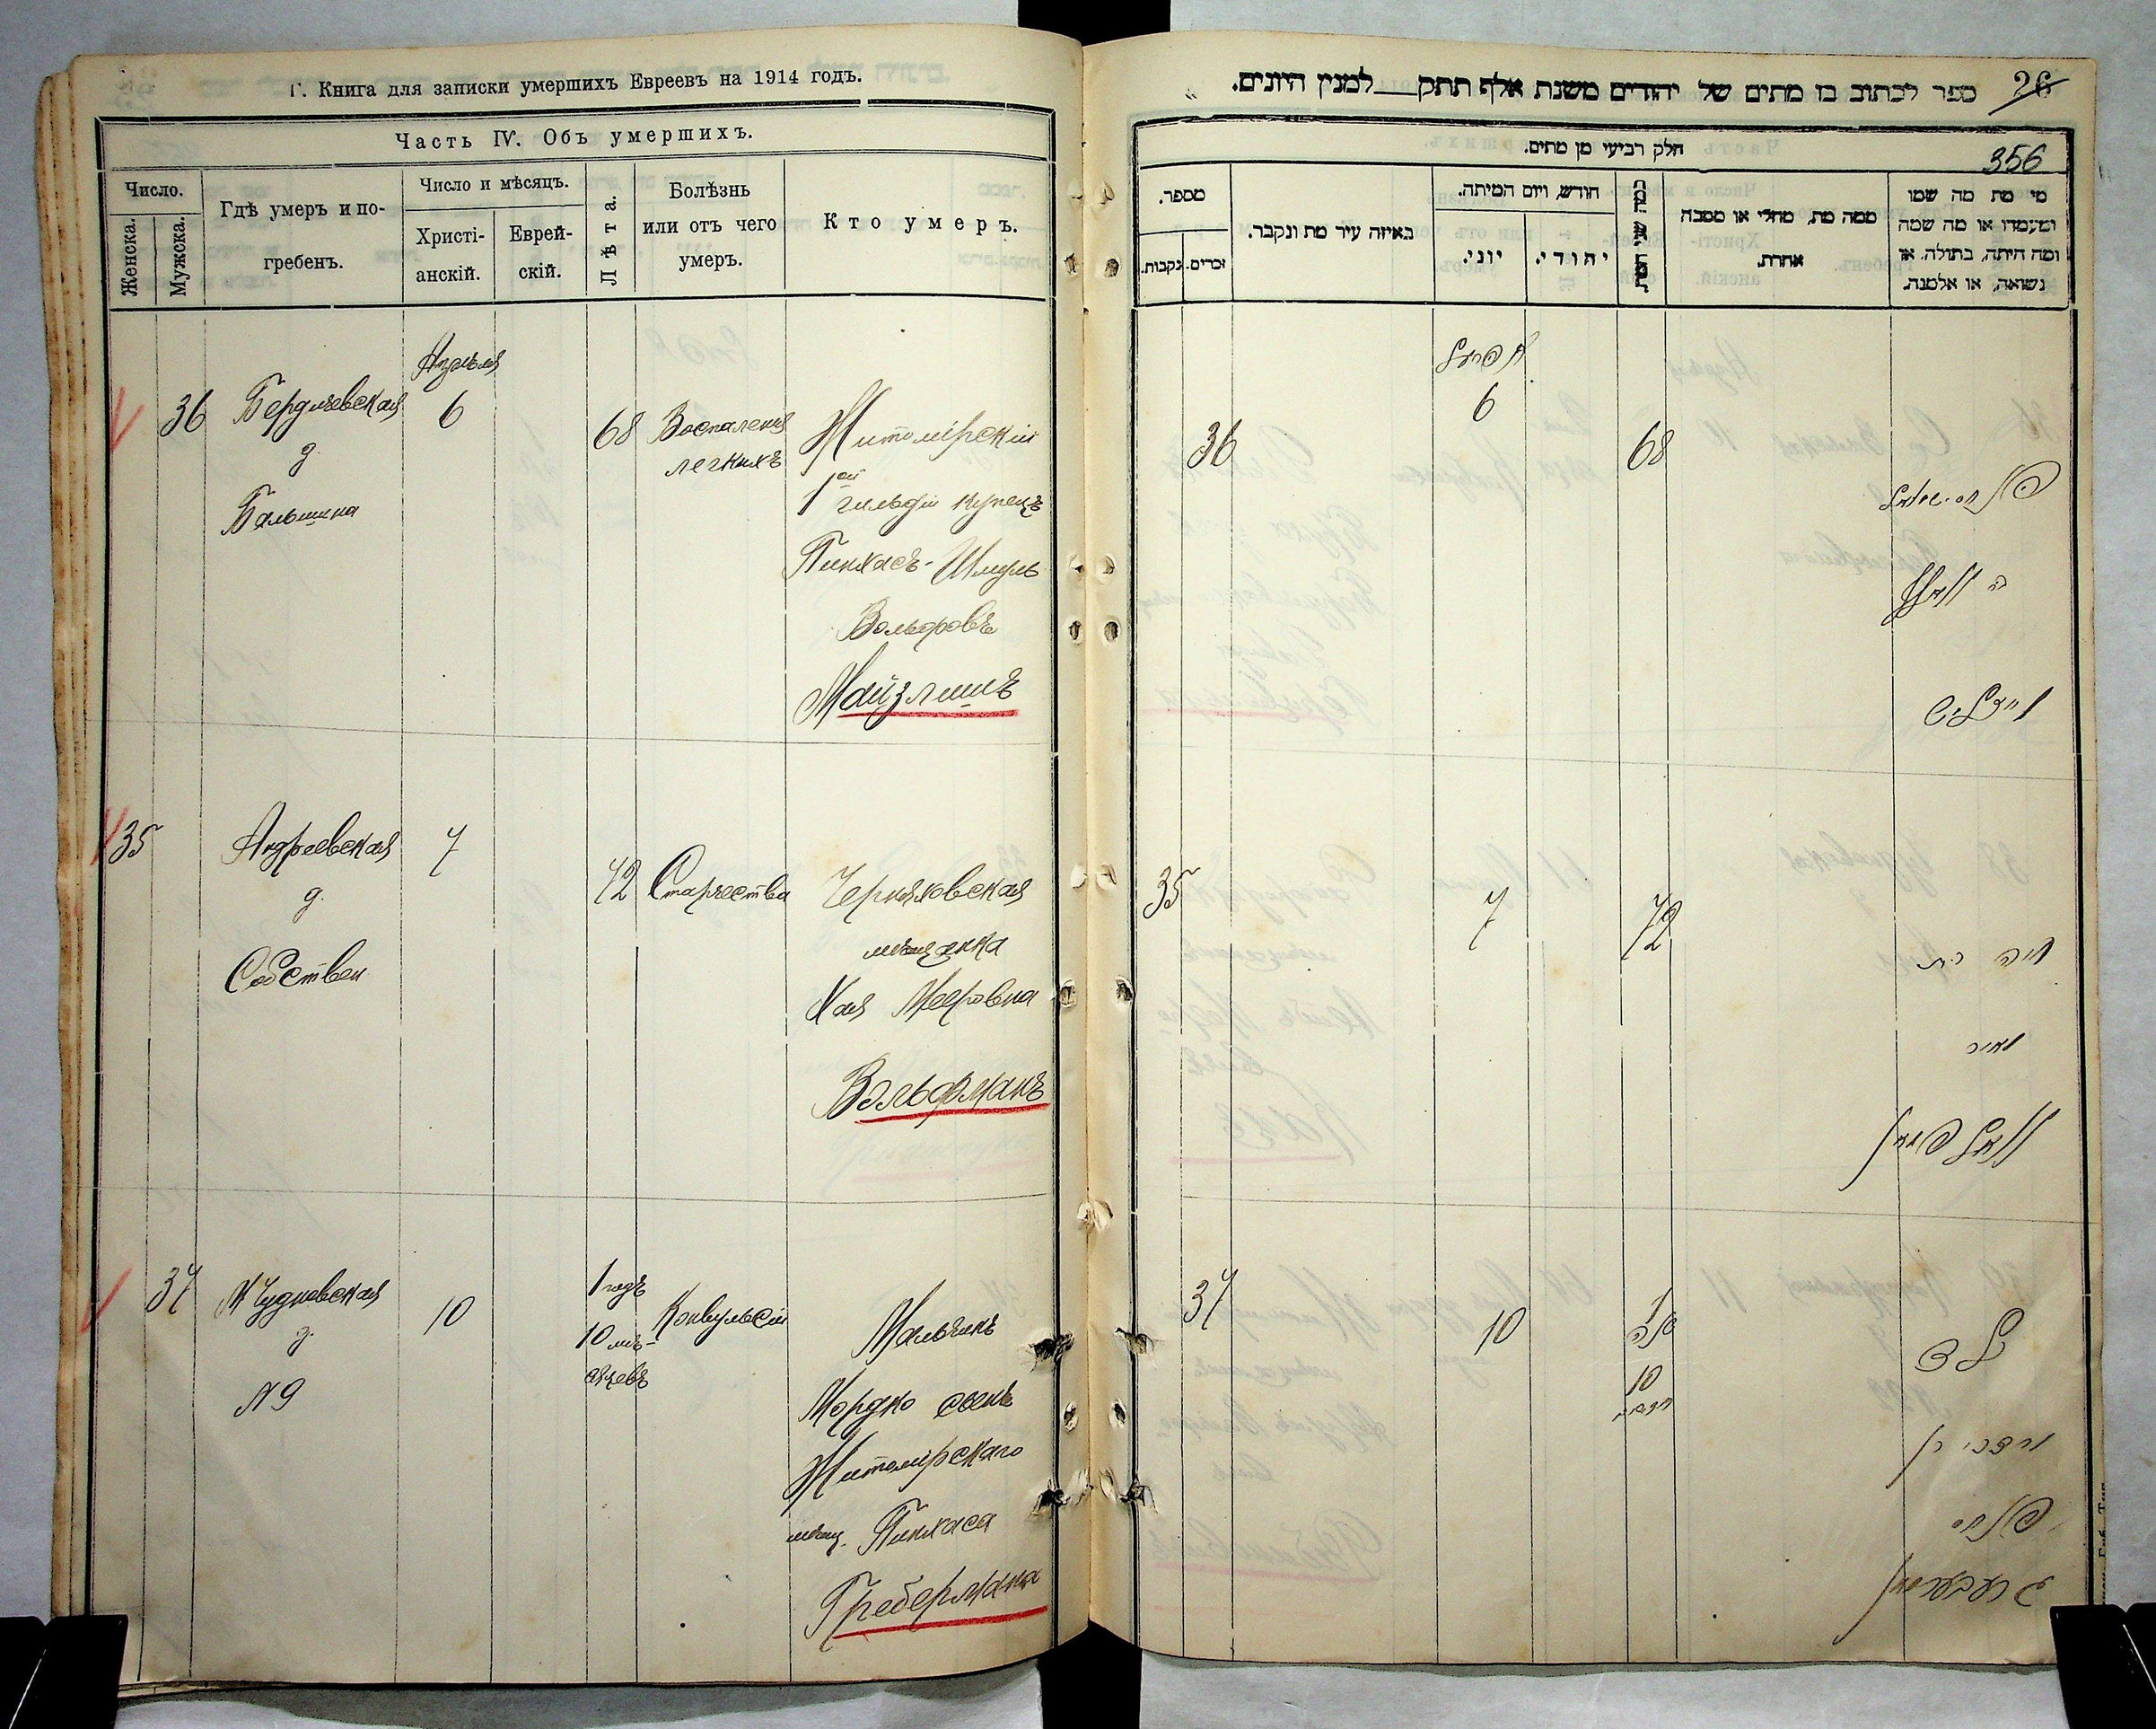 Г. Книга для записки умершихъ Евреевъ на 1914 годъ.
Часть IV. Объ умершихъ.
Число.
Женска.
Мужска.
Гдѣ умеръ и по-
гребенъ.
Число и мѣсяцъ.
Христі-
анскій.
Еврей-
скій.
Лѣта.
Болѣзнь
или отъ чего
умеръ.
Кто умеръ.
Апрѣля
36
Бердичевская
д.
Бальшина
6
68
Воспаленія
легкихъ
Житомірскій
1ой гильдіи купецъ
Пинхасъ-Шмуль
Вольфовъ
Майзлишъ
35
Андреевская
д.
Собствен
7
72
Старчества
Черняховская
мѣщанка
Хая Меровна
Вольфманъ
37
М Чудновская
д.
N 9
10
1 годъ
10 мѣ-
сяцевъ
Конвульсіи
Мальчикъ
Мордко сынъ
Житомірскаго
мѣщ. Пинхаса
Гребермана
ספר לכתוב בו מתים של יהודים משנת אלף תתק למנין היונים.
26
חלק רביעי מן מתים.
356
מספר.
נקבות.
זכרים.
באיזה עיר מת ונקבר.
חודש, ויום המיתה.
יוני.
יהודי.
כמה שני המת
ממה מת, מחלי או מסבה
אחרת.
מי מת מה שמו
ומעמדו או מה שמה
ומה היתה, בתולה, או
נשואה, או אלמנה.
אפריל
36
6
68
פנחס שמואל
ב וואלף
מייזליש
35
7
72
חיה בת
מאיר
וואלפמאן
37
10
1
שנה
10
חדשים
ילד
מרדכי בן
פנחס